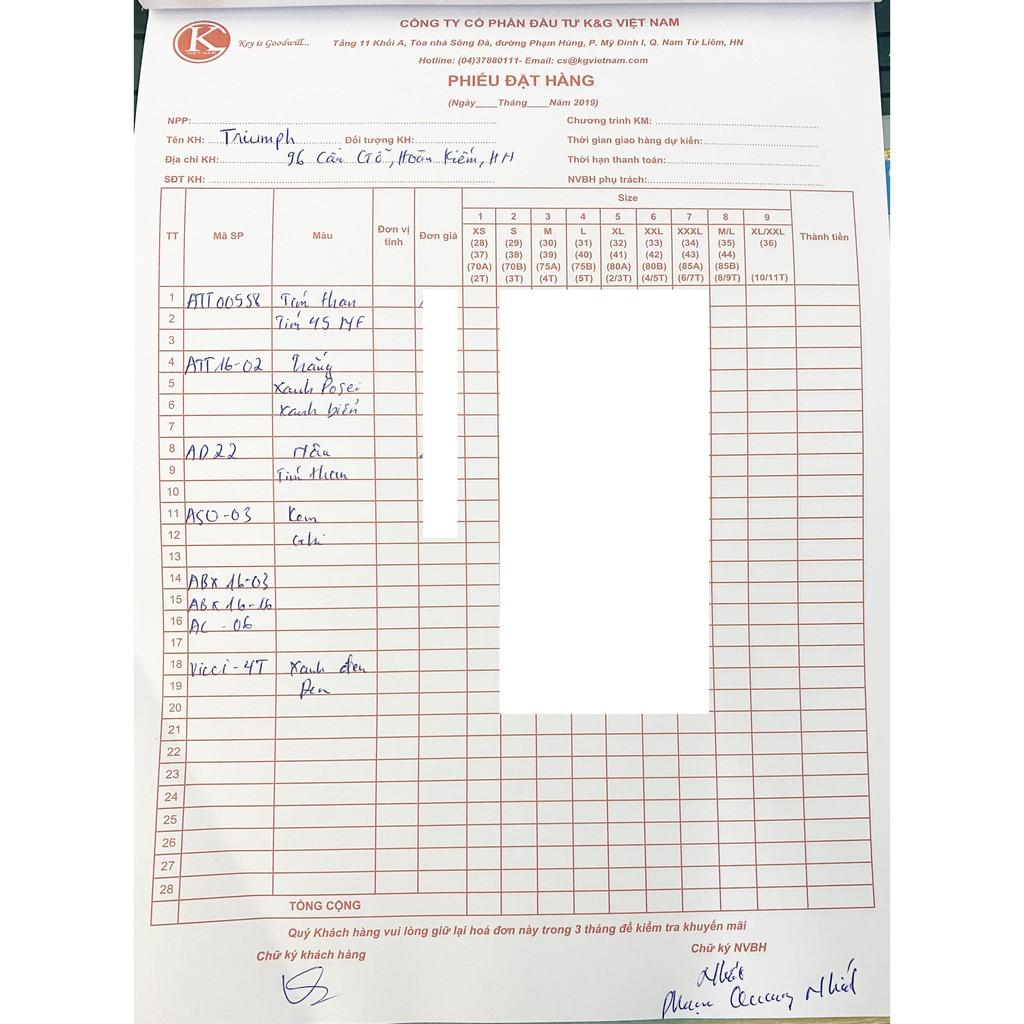 K
VIỆT NAM
Key is Goodwill...
CÔNG TY CỔ PHẦN ĐẦU TƯ K&G VIỆT NAM
Tầng 11 Khối A, Tòa nhà Sông Đà, đường Phạm Hùng, P. Mỹ Đình I, Q. Nam Từ Liêm, HN
Hotline: (04)37880111- Email: cs@kgvietnam.com
PHIẾU ĐẶT HÀNG
(Ngày____Tháng____Năm 2019)
NPP: Chương trình KM:
Tên KH: Triumph Đối tượng KH: Thời gian giao hàng dự kiến:
Địa chỉ KH: 96 Cầu Gỗ, Hoàn Kiếm, HN Thời hạn thanh toán:
SĐT KH: NVBH phụ trách:
TT Mã SP Màu Đơn vị tính Đơn giá Size Thành tiền
1 2 3 4 5 6 7 8 9
XS S M L XL XXL XXXL M/L XL/XXL
(28) (29) (30) (31) (32) (33) (34) (35) (36)
(37) (38) (39) (40) (41) (42) (43) (44)
(70A) (70B) (75A) (75B) (80A) (80B) (85A) (85B)
(2T) (3T) (4T) (5T) (2/3T) (4/5T) (6/7T) (8/9T) (10/11T)
1 ATT00558 Tím than
2 Tím 45
3
4 ATT16-02 Trắng
5 Xanh Posei
6 Xanh biển
7
8 AD22 Nâu
9 Tím than
10
11 ASO-03 Kem
12 Ghi
13
14 ABX 16-03
15 ABX 16-16
16 AC - 06
17
18 Vicci-4T Xanh đen
19 Đen
20
21
22
23
24
25
26
27
28
TỔNG CỘNG
Quý Khách hàng vui lòng giữ lại hoá đơn này trong 3 tháng để kiểm tra khuyến mãi
Chữ ký khách hàng Chữ ký NVBH
Phạm Quang